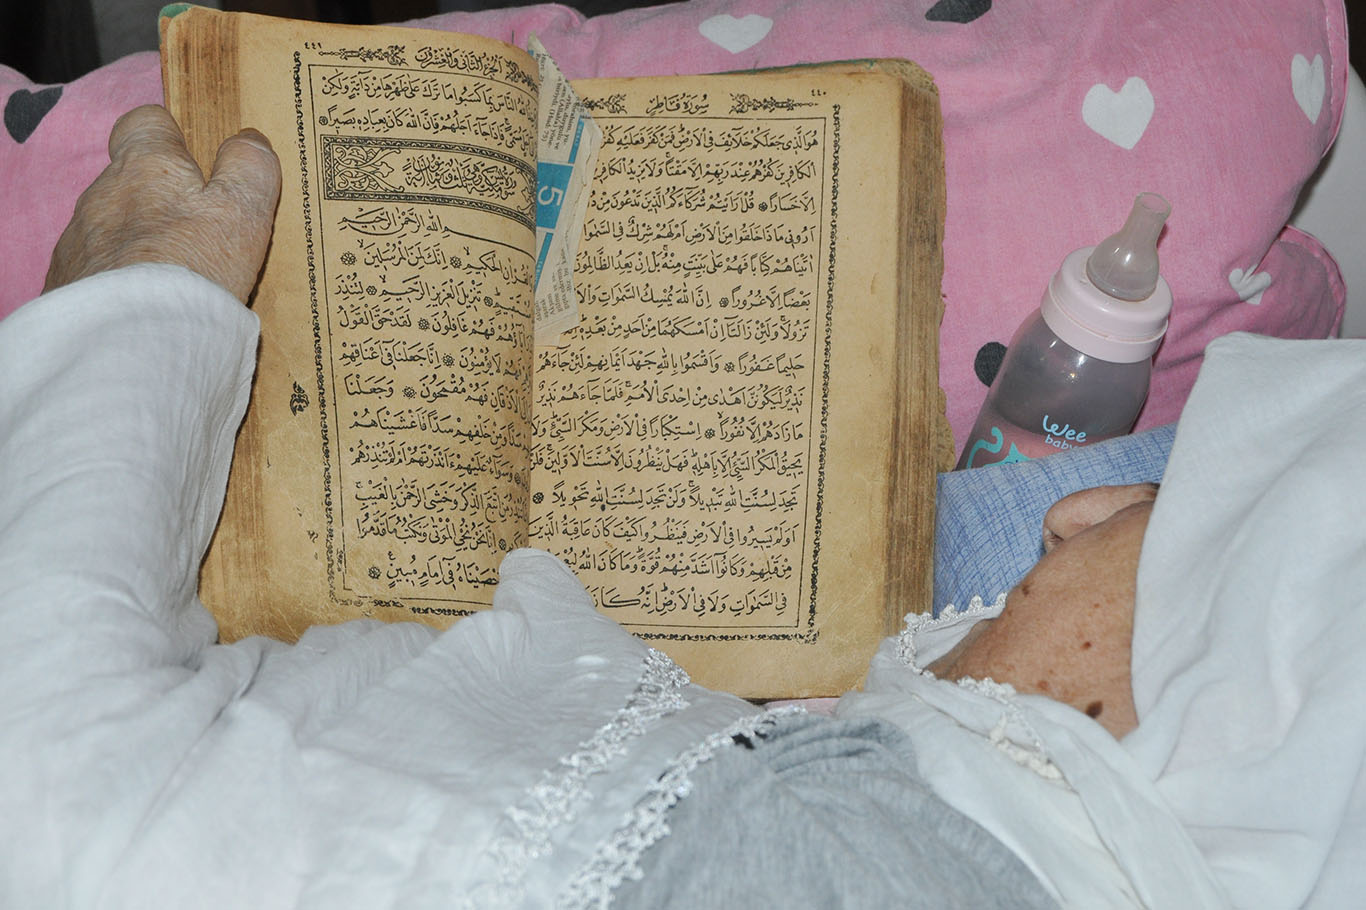 ٤٤٠
سُورَةُ فَاطِرٍ
هُوَ الَّذِي جَعَلَكُمْ خَلَآئِفَ فِي الْاَرْضِ فَمَنْ كَفَرَ فَعَلَيْهِ
الْكَافِرِينَ كُفْرُهُمْ عِنْدَ رَبِّهِمْ اِلَّا مَقْتًا وَلَا يَزِيدُ
اِلَّا خَسَارًا قُلْ اَرَاَيْتُمْ شُرَكَآءَكُمُ الَّذِينَ تَدْعُونَ مِنْ
اَرُونِي مَاذَا خَلَقُوا مِنَ الْاَرْضِ اَمْ لَهُمْ شِرْكٌ فِي
اٰتَيْنَاهُمْ كِتَابًا فَهُمْ عَلٰى بَيِّنَتٍ مِنْهُ بَلْ اِنْ يَعِدُ الظَّالِمُونَ
بَعْضًا اِلَّا غُرُورًا اِنَّ اللّٰهَ يُمْسِكُ السَّمٰوَاتِ
تَزُولَا وَلَئِنْ زَالَتَآ اِنْ اَمْسَكَهُمَا مِنْ اَحَدٍ مِنْ بَعْدِهِ
حَلِيمًا غَفُورًا وَاَقْسَمُوا بِاللّٰهِ جَهْدَ اَيْمَانِهِمْ لَئِنْ جَآءَهُمْ
نَذِيرٌ لَيَكُونُنَّ اَهْدٰى مِنْ اِحْدَى الْاُمَمِ فَلَمَّا جَآءَهُمْ نَذِيرٌ
مَا زَادَهُمْ اِلَّا نُفُورًا اِسْتِكْبَارًا فِي الْاَرْضِ وَمَكْرَ السَّيِّئِ وَلَا
يَحِيقُ الْمَكْرُ السَّيِّئُ اِلَّا بِاَهْلِهِ فَهَلْ يَنْظُرُونَ اِلَّا سُنَّتَ الْاَوَّلِينَ فَلَنْ
تَجِدَ لِسُنَّتِ اللّٰهِ تَبْدِيلًا وَلَنْ تَجِدَ لِسُنَّتِ اللّٰهِ تَحْوِيلًا
اَوَلَمْ يَسِيرُوا فِي الْاَرْضِ فَيَنْظُرُوا كَيْفَ كَانَ عَاقِبَةُ الَّذِينَ
مِنْ قَبْلِهِمْ وَكَانُوٓا اَشَدَّ مِنْهُمْ قُوَّةً وَمَا كَانَ اللّٰهُ
فِي السَّمٰوَاتِ وَلَا فِي الْاَرْضِ اِنَّهُ كَانَ
٤٤١
اَلْجُزْءُ الثَّانِي وَالْعِشْرُونَ
اللّٰهُ النَّاسَ بِمَا كَسَبُوا مَا تَرَكَ عَلٰى ظَهْرِهَا مِنْ دَآبَّةٍ وَلٰكِنْ
فَاِذَا جَآءَ اَجَلُهُمْ فَاِنَّ اللّٰهَ كَانَ بِعِبَادِهِ بَصِيرًا
اللّٰهِ الرَّحْمٰنِ الرَّحِيمِ
الْحَكِيمِ اِنَّكَ لَمِنَ الْمُرْسَلِينَ
تَنْزِيلَ الْعَزِيزِ الرَّحِيمِ لِتُنْذِرَ
فَهُمْ غَافِلُونَ لَقَدْ حَقَّ الْقَوْلُ
لَا يُؤْمِنُونَ اِنَّا جَعَلْنَا فِٓي اَعْنَاقِهِمْ
الْاَذْقَانِ فَهُمْ مُقْمَحُونَ وَجَعَلْنَا
سَدًّا وَمِنْ خَلْفِهِمْ سَدًّا فَاَغْشَيْنَاهُمْ
وَسَوَآءٌ عَلَيْهِمْ ءَاَنْذَرْتَهُمْ اَمْ لَمْ تُنْذِرْهُمْ
مَنِ اتَّبَعَ الذِّكْرَ وَخَشِيَ الرَّحْمٰنَ بِالْغَيْبِ
اِنَّا نَحْنُ نُحْيِ الْمَوْتٰى وَنَكْتُبُ مَا قَدَّمُوا
اَحْصَيْنَاهُ فِٓي اِمَامٍ مُبِينٍ
5
Wee
baby